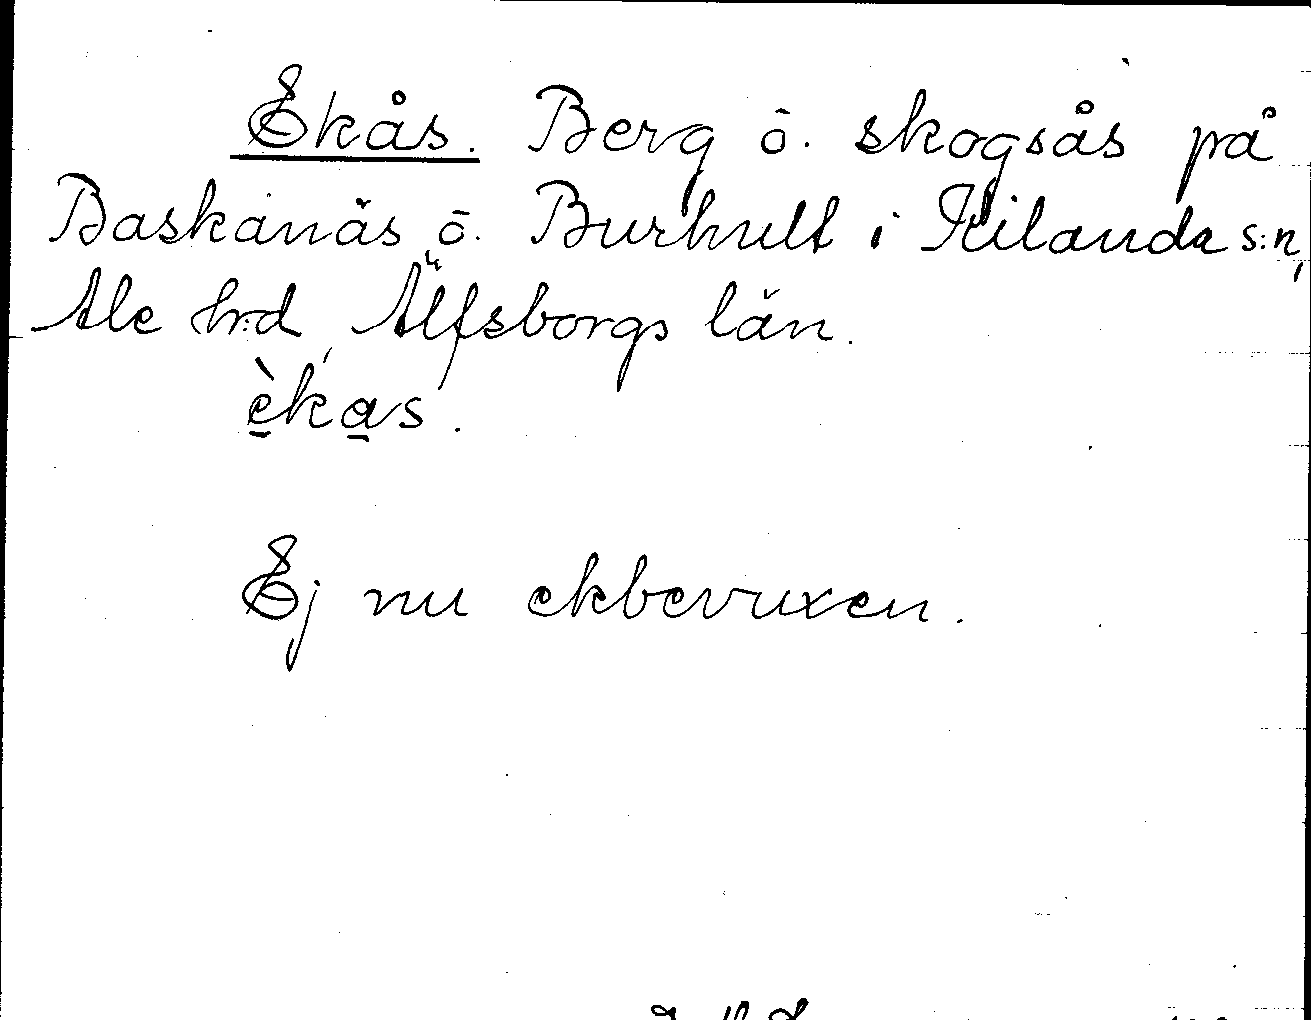 Ekås. Berg o. skogsås på
Baskanäs o. Burhult i Kilanda s:n,
Ale h:d, Älfsborgs län.
èkas.
Ej nu ekbevuxen.